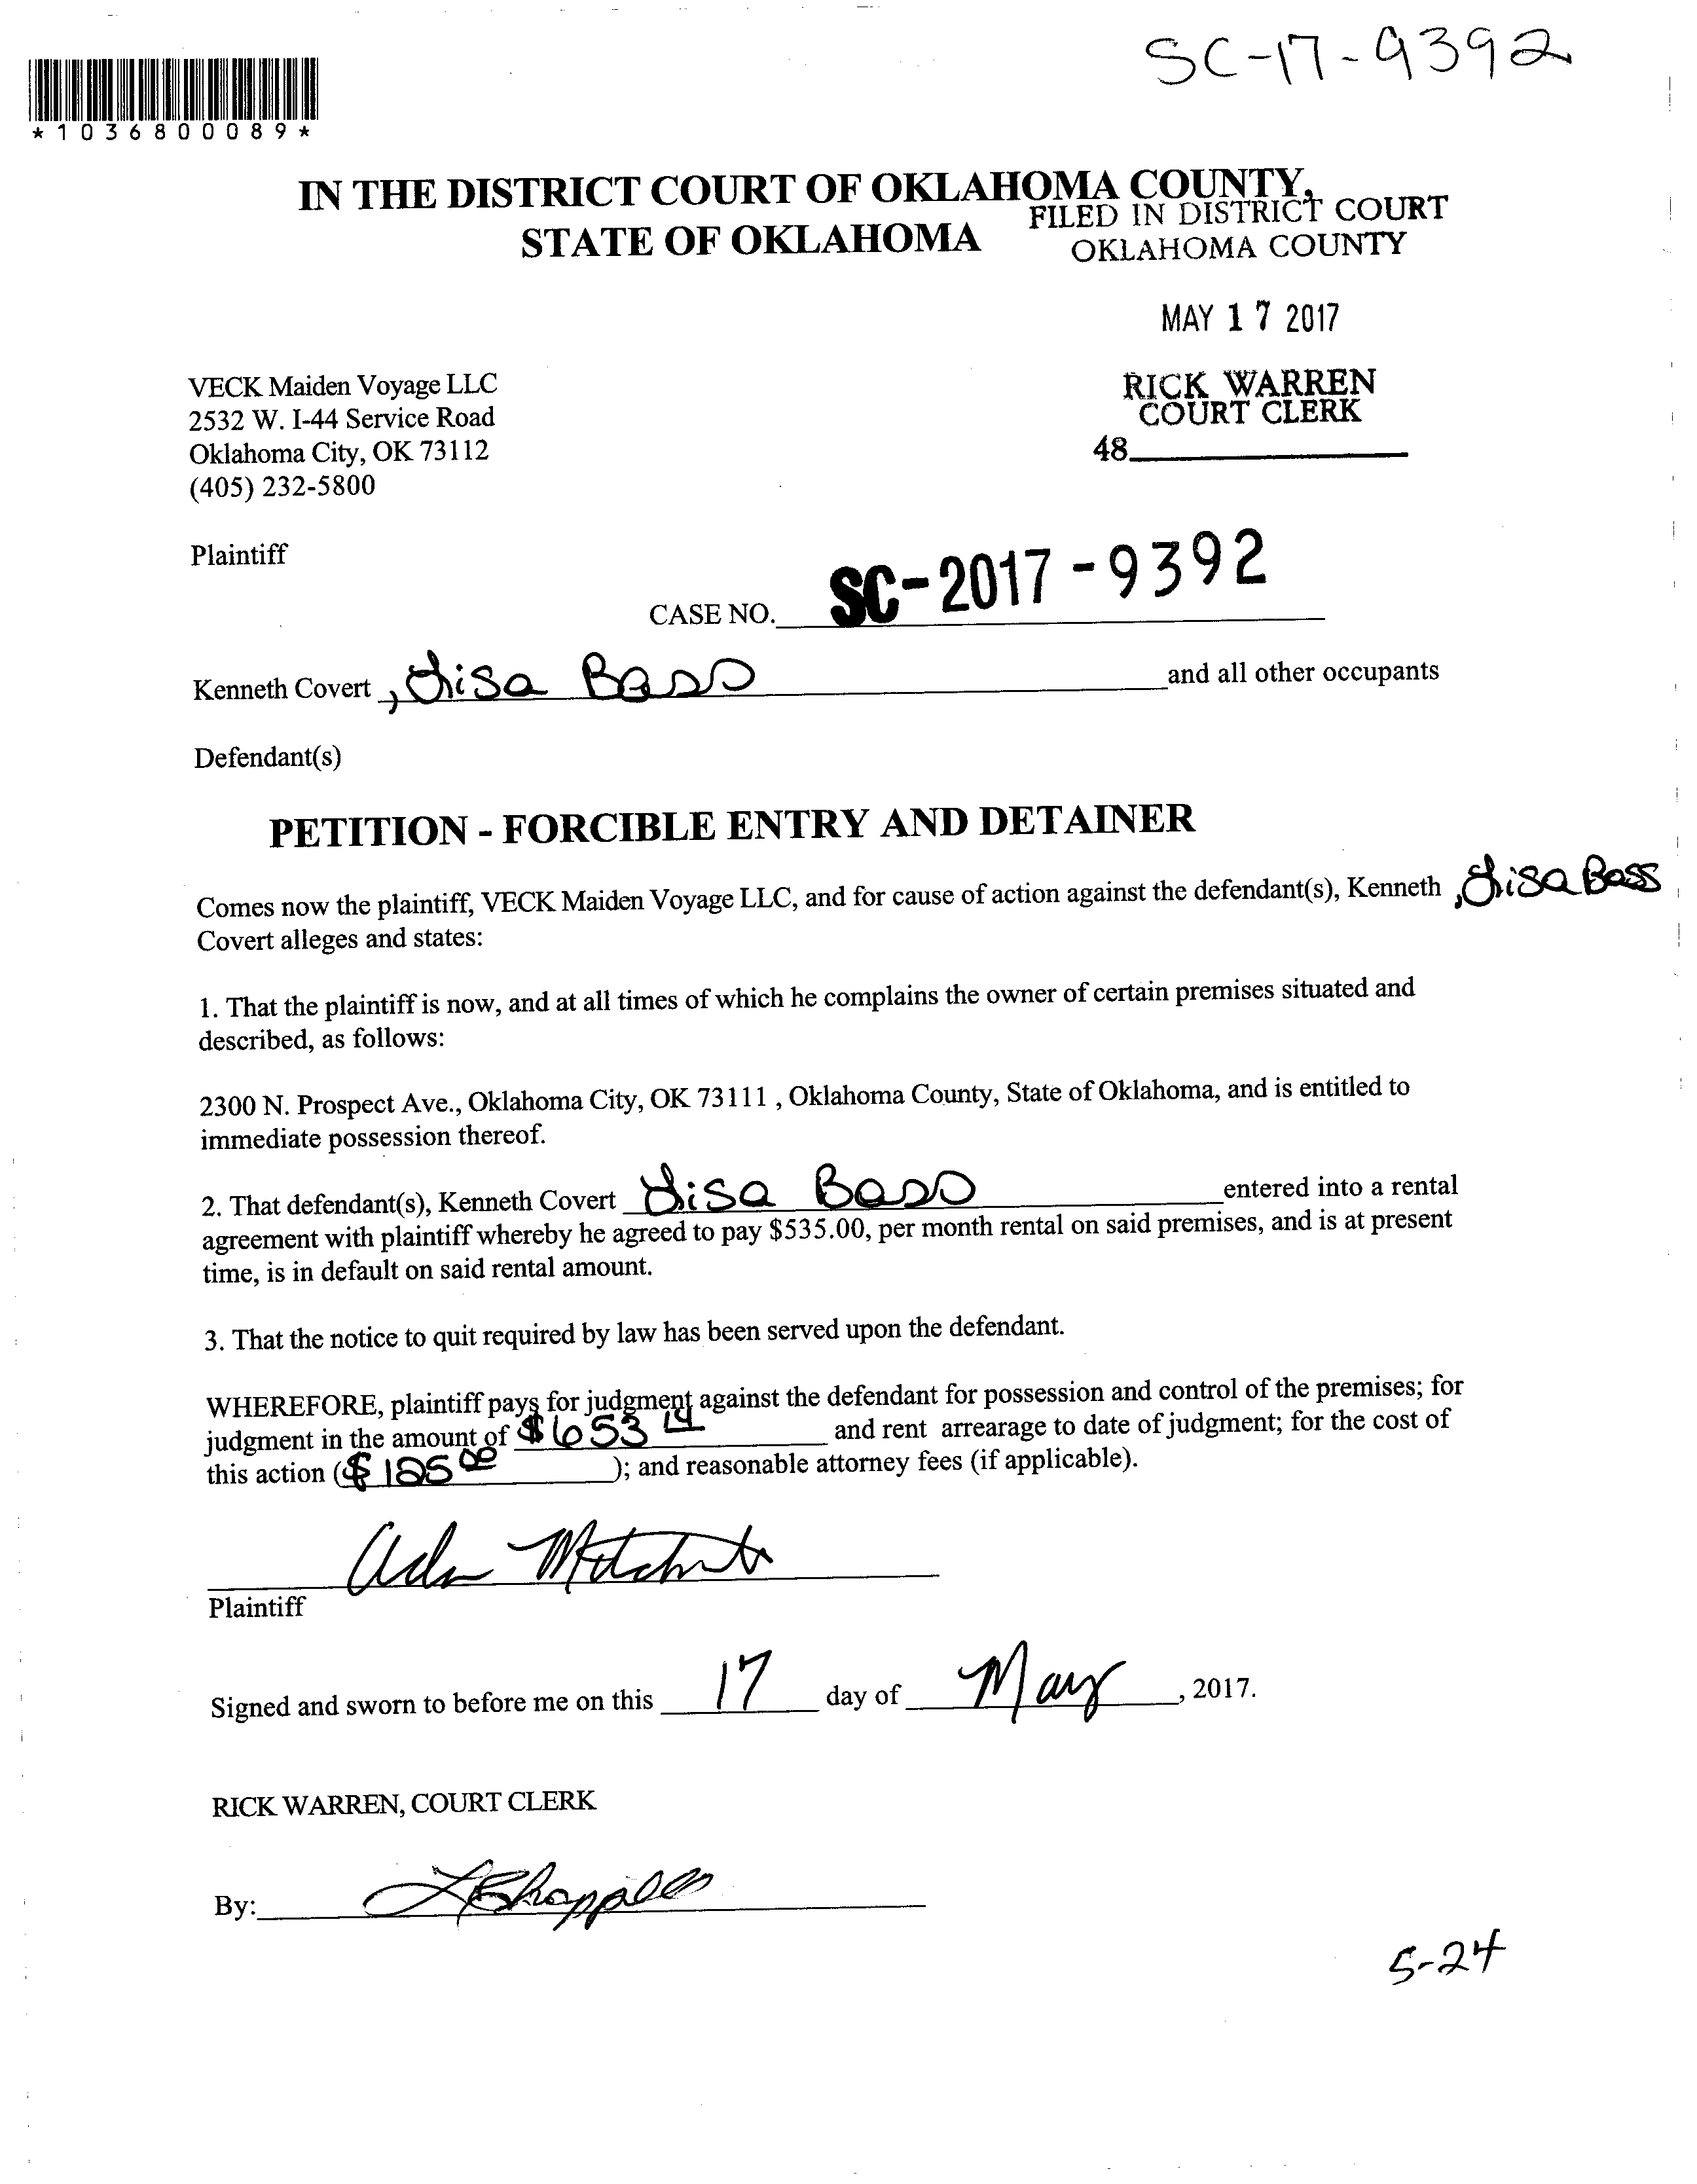 SC-17-9392
*1036800089*
IN THE DISTRICT COURT OF OKLAHOMA COUNTY,
STATE OF OKLAHOMA
FILED IN DISTRICT COURT
OKLAHOMA COUNTY
MAY 17 2017
RICK WARREN
COURT CLERK
48
VECK Maiden Voyage LLC
2532 W. I-44 Service Road
Oklahoma City, OK 73112
(405) 232-5800
Plaintiff
CASE NO. SC-2017-9392
Kenneth Covert, Lisa Bass and all other occupants
Defendant(s)
PETITION - FORCIBLE ENTRY AND DETAINER
Comes now the plaintiff, VECK Maiden Voyage LLC, and for cause of action against the defendant(s), Kenneth , Lisa Bass
Covert alleges and states:
1. That the plaintiff is now, and at all times of which he complains the owner of certain premises situated and
described, as follows:
2300 N. Prospect Ave., Oklahoma City, OK 73111 , Oklahoma County, State of Oklahoma, and is entitled to
immediate possession thereof.
2. That defendant(s), Kenneth Covert Lisa Bass entered into a rental
agreement with plaintiff whereby he agreed to pay $535.00, per month rental on said premises, and is at present
time, is in default on said rental amount.
3. That the notice to quit required by law has been served upon the defendant.
WHEREFORE, plaintiff pays for judgment against the defendant for possession and control of the premises; for
judgment in the amount of $653 14 and rent arrearage to date of judgment; for the cost of
this action ($185 00); and reasonable attorney fees (if applicable).
Plaintiff
Signed and sworn to before me on this 17 day of May, 2017.
RICK WARREN, COURT CLERK
By:
5-24